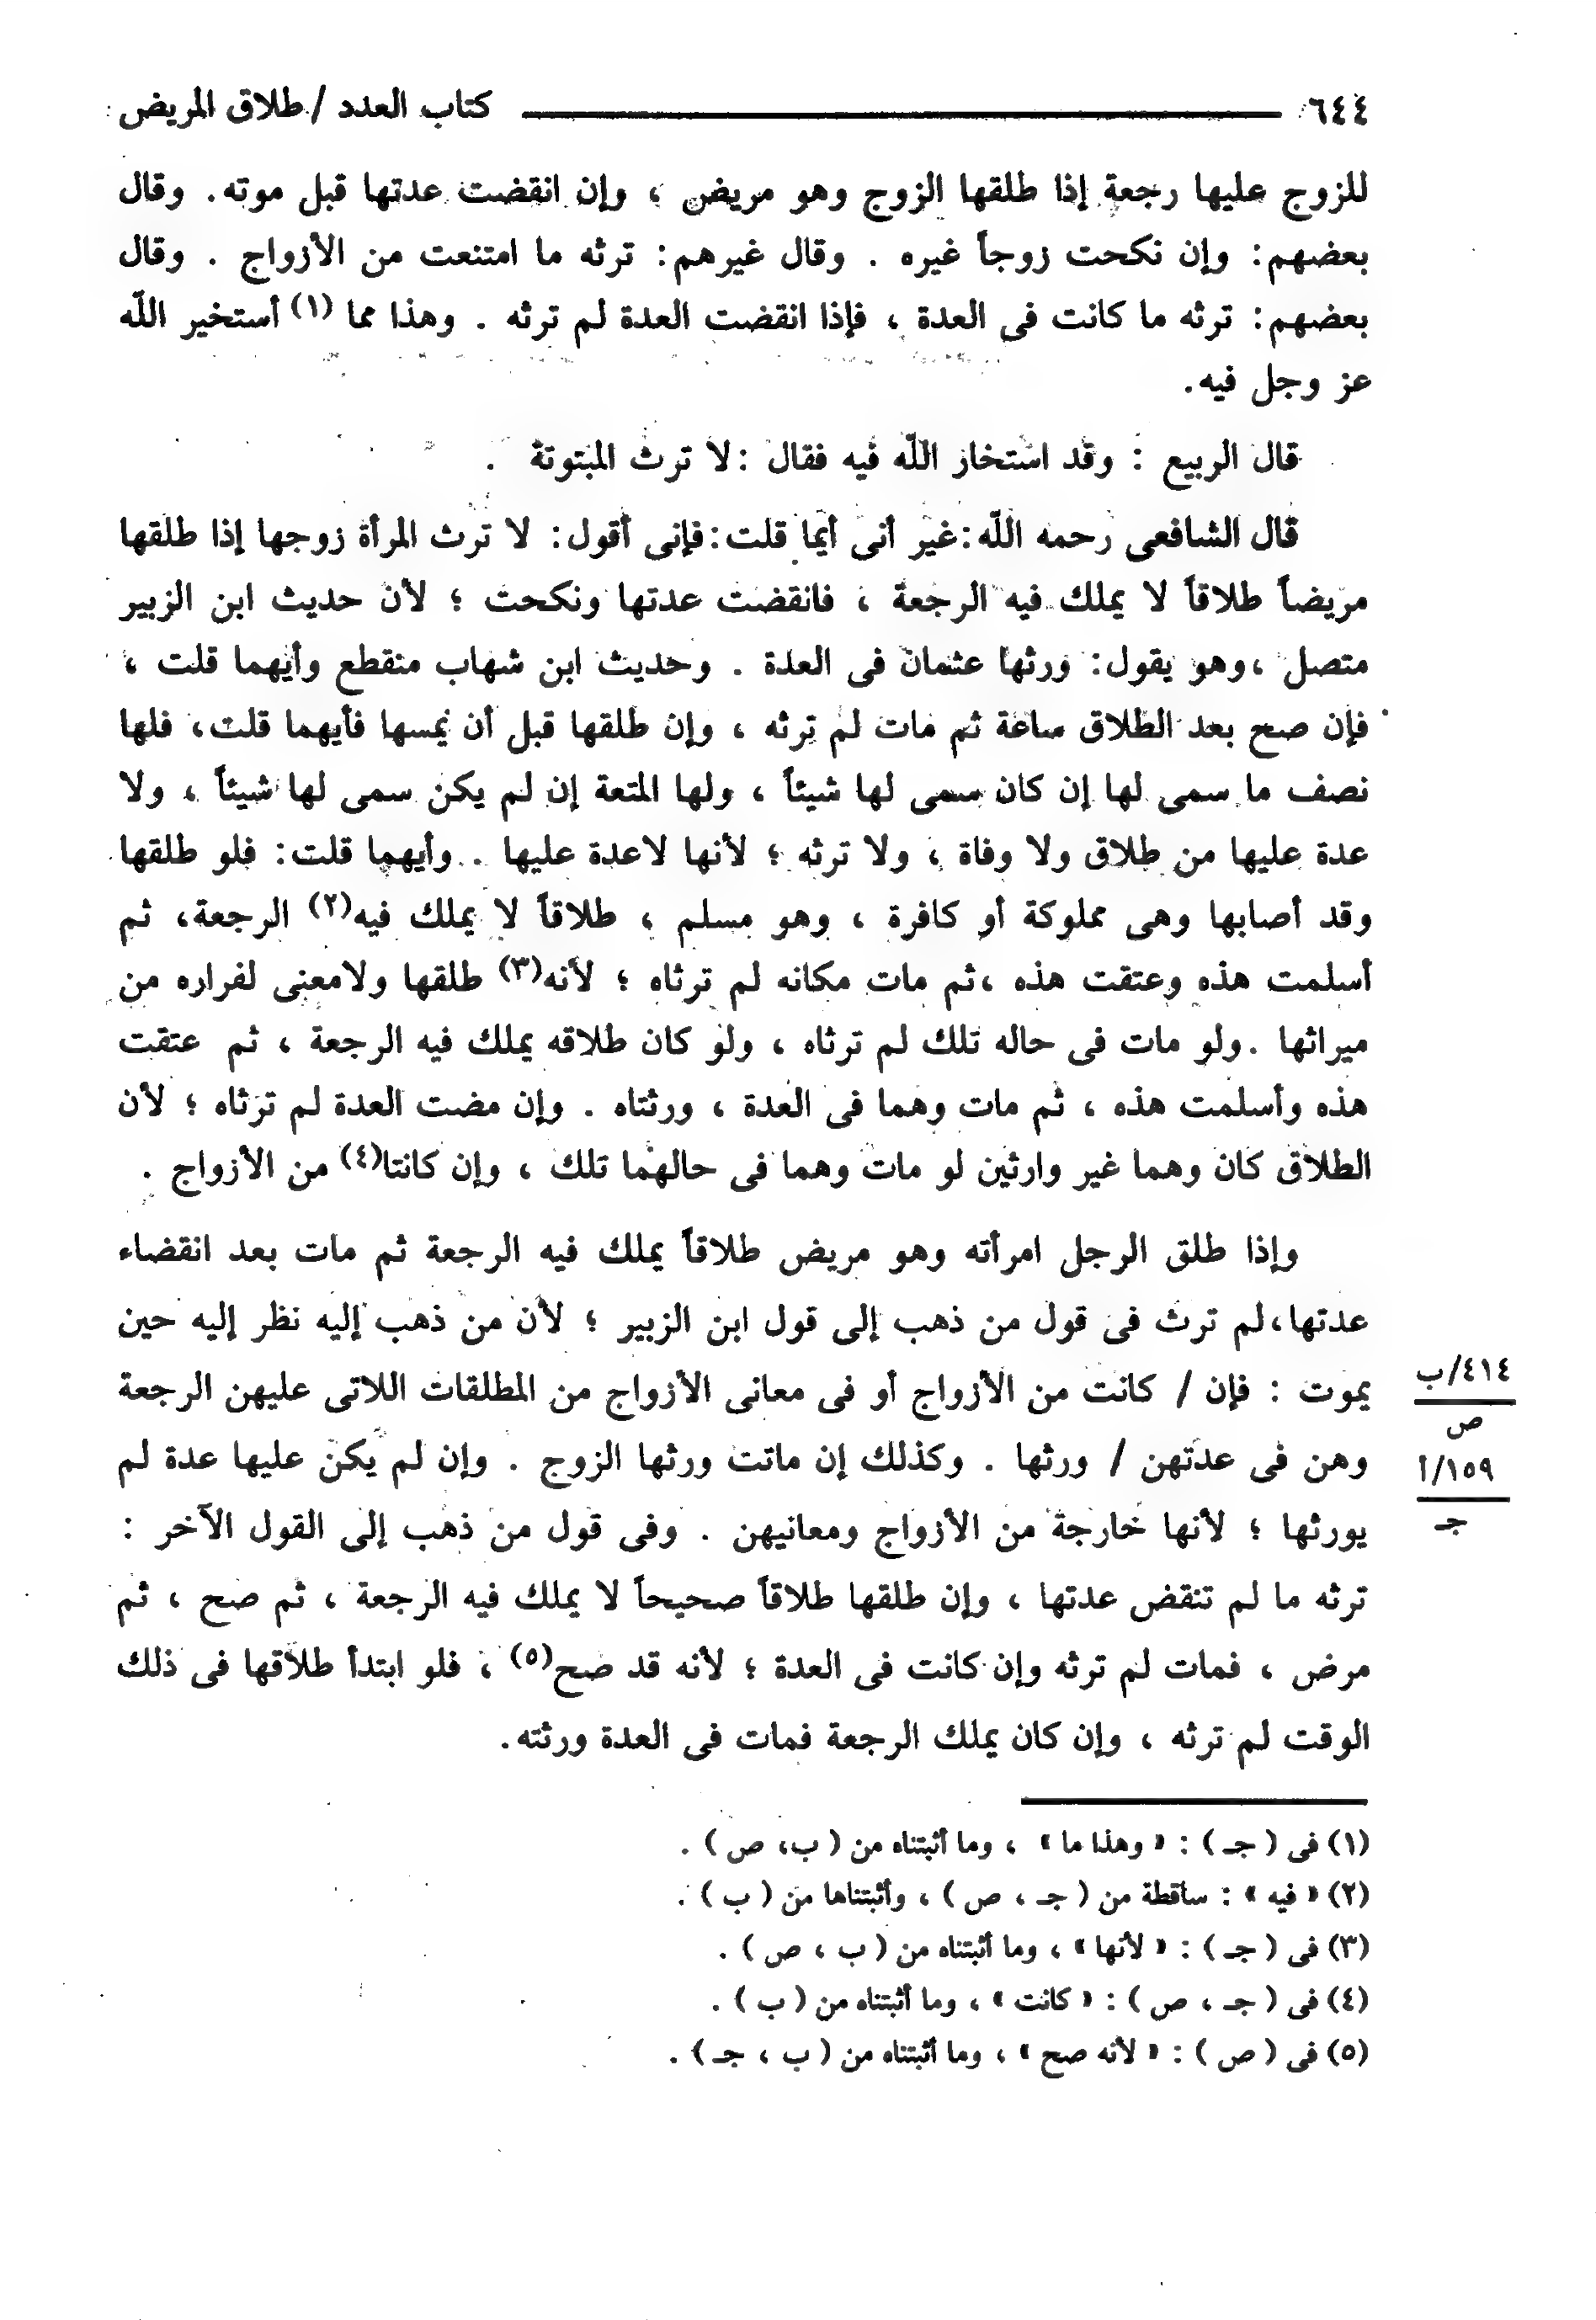 ٦٤٤ كتاب العدد / طلاق المريض
للزوج عليها رجعة إذا طلقها الزوج وهو مريض ، وإن انقضت عدتها قبل موته. وقال
بعضهم: وإن نكحت زوجاً غيره . وقال غيرهم: ترثه ما امتنعت من الأزواج . وقال
بعضهم: ترثه ما كانت فى العدة ، فإذا انقضت العدة لم ترثه . وهذا مما (١) أستخير اللّه
عز وجل فيه.
قال الربيع : وقد استخار اللّه فيه فقال :لا ترث المبتوتة .
قال الشافعى رحمه اللّه:غير أنى أيما قلت:فإنى أقول: لا ترث المرأة زوجها إذا طلقها
مريضاً طلاقاً لا يملك فيه الرجعة ، فانقضت عدتها ونكحت ؛ لأن حديث ابن الزبير
متصل ،وهو يقول: ورثها عثمان فى العدة . وحديث ابن شهاب منقطع وأيهما قلت ،
فإن صح بعد الطلاق ساعة ثم مات لم ترثه ، وإن طلقها قبل أن يمسها فأيهما قلت، فلها
نصف ما سمى لها إن كان سمى لها شيئاً ، ولها المتعة إن لم يكن سمى لها شيئاً ، ولا
عدة عليها من طلاق ولا وفاة ، ولا ترثه ؛ لأنها لاعدة عليها . وأيهما قلت: فلو طلقها
وقد أصابها وهى مملوكة أو كافرة ، وهو مسلم ، طلاقاً لا يملك فيه(٢) الرجعة، ثم
أسلمت هذه وعتقت هذه ،ثم مات مكانه لم ترثاه ؛ لأنه(٣) طلقها ولامعنى لفراره من
ميراثها .ولو مات فى حاله تلك لم ترثاه ، ولو كان طلاقه يملك فيه الرجعة ، ثم عتقت
هذه وأسلمت هذه ، ثم مات وهما فى العدة ، ورثتاه . وإن مضت العدة لم ترثاه ؛ لأن
الطلاق كان وهما غير وارثين لو مات وهما فى حالهما تلك ، وإن كانتا(٤) من الأزواج .
وإذا طلق الرجل امرأته وهو مريض طلاقاً يملك فيه الرجعة ثم مات بعد انقضاء
عدتها،لم ترث فى قول من ذهب إلى قول ابن الزبير ؛ لأن من ذهب إليه نظر إليه حين
يموت : فإن / كانت من الأزواج أو فى معانى الأزواج من المطلقات اللاتى عليهن الرجعة
٤١٤/ب
ص
وهن فى عدتهن / ورثها . وكذلك إن ماتت ورثها الزوج . وإن لم يكن عليها عدة لم
١٥٩/أ
جـ
يورثها ؛ لأنها خارجة من الأزواج ومعانيهن . وفى قول من ذهب إلى القول الآخر :
ترثه ما لم تنقض عدتها ، وإن طلقها طلاقاً صحيحاً لا يملك فيه الرجعة ، ثم صح ، ثم
مرض ، فمات لم ترثه وإن كانت فى العدة ؛ لأنه قد صح(٥) ، فلو ابتدأ طلاقها فى ذلك
الوقت لم ترثه ، وإن كان يملك الرجعة فمات فى العدة ورثته.
(١) فى ( جـ ) : « وهذا ما » ، وما أثبتناه من ( ب، ص ) .
(٢) « فيه » : ساقطة من ( جـ ، ص ) ، وأثبتناها من ( ب ) .
(٣) فى ( جـ ) : « لأنها » ، وما أثبتناه من ( ب ، ص ) .
(٤) فى ( جـ ، ص ) : « كانت » ، وما أثبتناه من ( ب ) .
(٥) فى ( ص ) : « لأنه صح » ، وما أثبتناه من ( ب ، جـ ) .